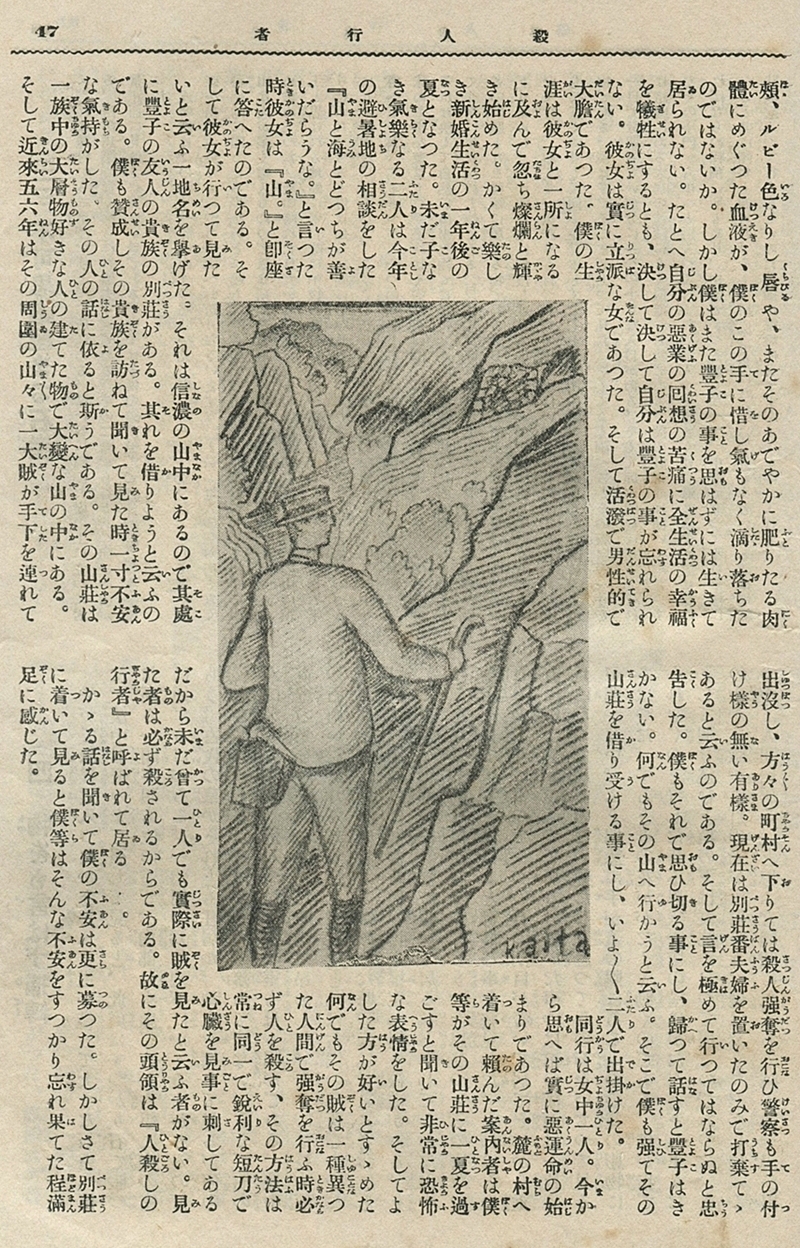 47
殺人行者
頬、ルビー色なりし唇や、またそのあでやかに肥りたる肉
體にめぐつた血液が、僕のこの手に惜し氣もなく滴り落ちた
のではないか。しかし僕はまた豐子の事を思はずには生きて
居られない。たとへ自分の惡業の回想の苦痛に全生活の幸福
を犧牲にするとも、決して決して自分は豐子の事が忘れられ
ない。彼女は實に立派な女であつた。そして活潑で男性的で
大膽であつた。僕の生
涯は彼女と一所になる
に及んで忽ち燦爛と輝
き始めた。かくて樂し
き新婚生活の一年後の
夏となつた。未だ子な
き氣樂なる二人は今年
の避暑地の相談をした
『山と海とどつちが善
いだらうな。』と言つた
時彼女は『山。』と卽座
に答へたのである。そ
して彼女が行つて見た
いと云ふ一地名を擧げた。それは信濃の山中にあるので其處
に豐子の友人の貴族の別莊がある。其れを借りようと云ふの
である。僕も賛成しその貴族を訪ねて聞いて見た時一寸不安
な氣持がした。その人の話に依ると斯うである。その山莊は
一族中の大層物好きな人の建てた物で大變な山の中にある。
そして近來五六年はその周圍の山々に一大賊が手下を連れて
出沒し、方々の町村へ下りては殺人强奪を行ひ警察も手の付
け樣の無い有樣。現在は別莊番夫婦を置いたのみで打棄てゝ
あると云ふのである。そして言を極めて行つてはならぬと忠
告した。僕もそれで思ひ切る事にし、歸つて話すと豐子はき
かない。何でもその山へ行かうと云ふ。そこで僕も强てその
山莊を借り受ける事にし、いよ〱二人で出掛けた。
同行は女中一人。今か
ら思へば實に惡運命の始
まりであつた。麓の村へ
着いて賴んだ案內者は僕
等がその山莊に一夏を過
ごすと聞いて非常に恐怖
な表情をした。そしてよ
した方が好いとすゝめた
何でもその賊は一種異つ
た人間で强奪を行ふ時必
ず人を殺す、その方法は
常に同一で銳利な短刀で
心臟を見事に刺してある
だから未だ曾て一人でも實際に賊を見たと云ふ者がない。見
た者は必ず殺されるからである。故にその頭領は『人殺しの
行者』と呼ばれて居る。
かゝる話を聞いて僕の不安は更に募つた。しかしさて別莊
に着いて見ると僕等はそんな不安をすつかり忘れ果てた程滿
足に感じた。
kaita